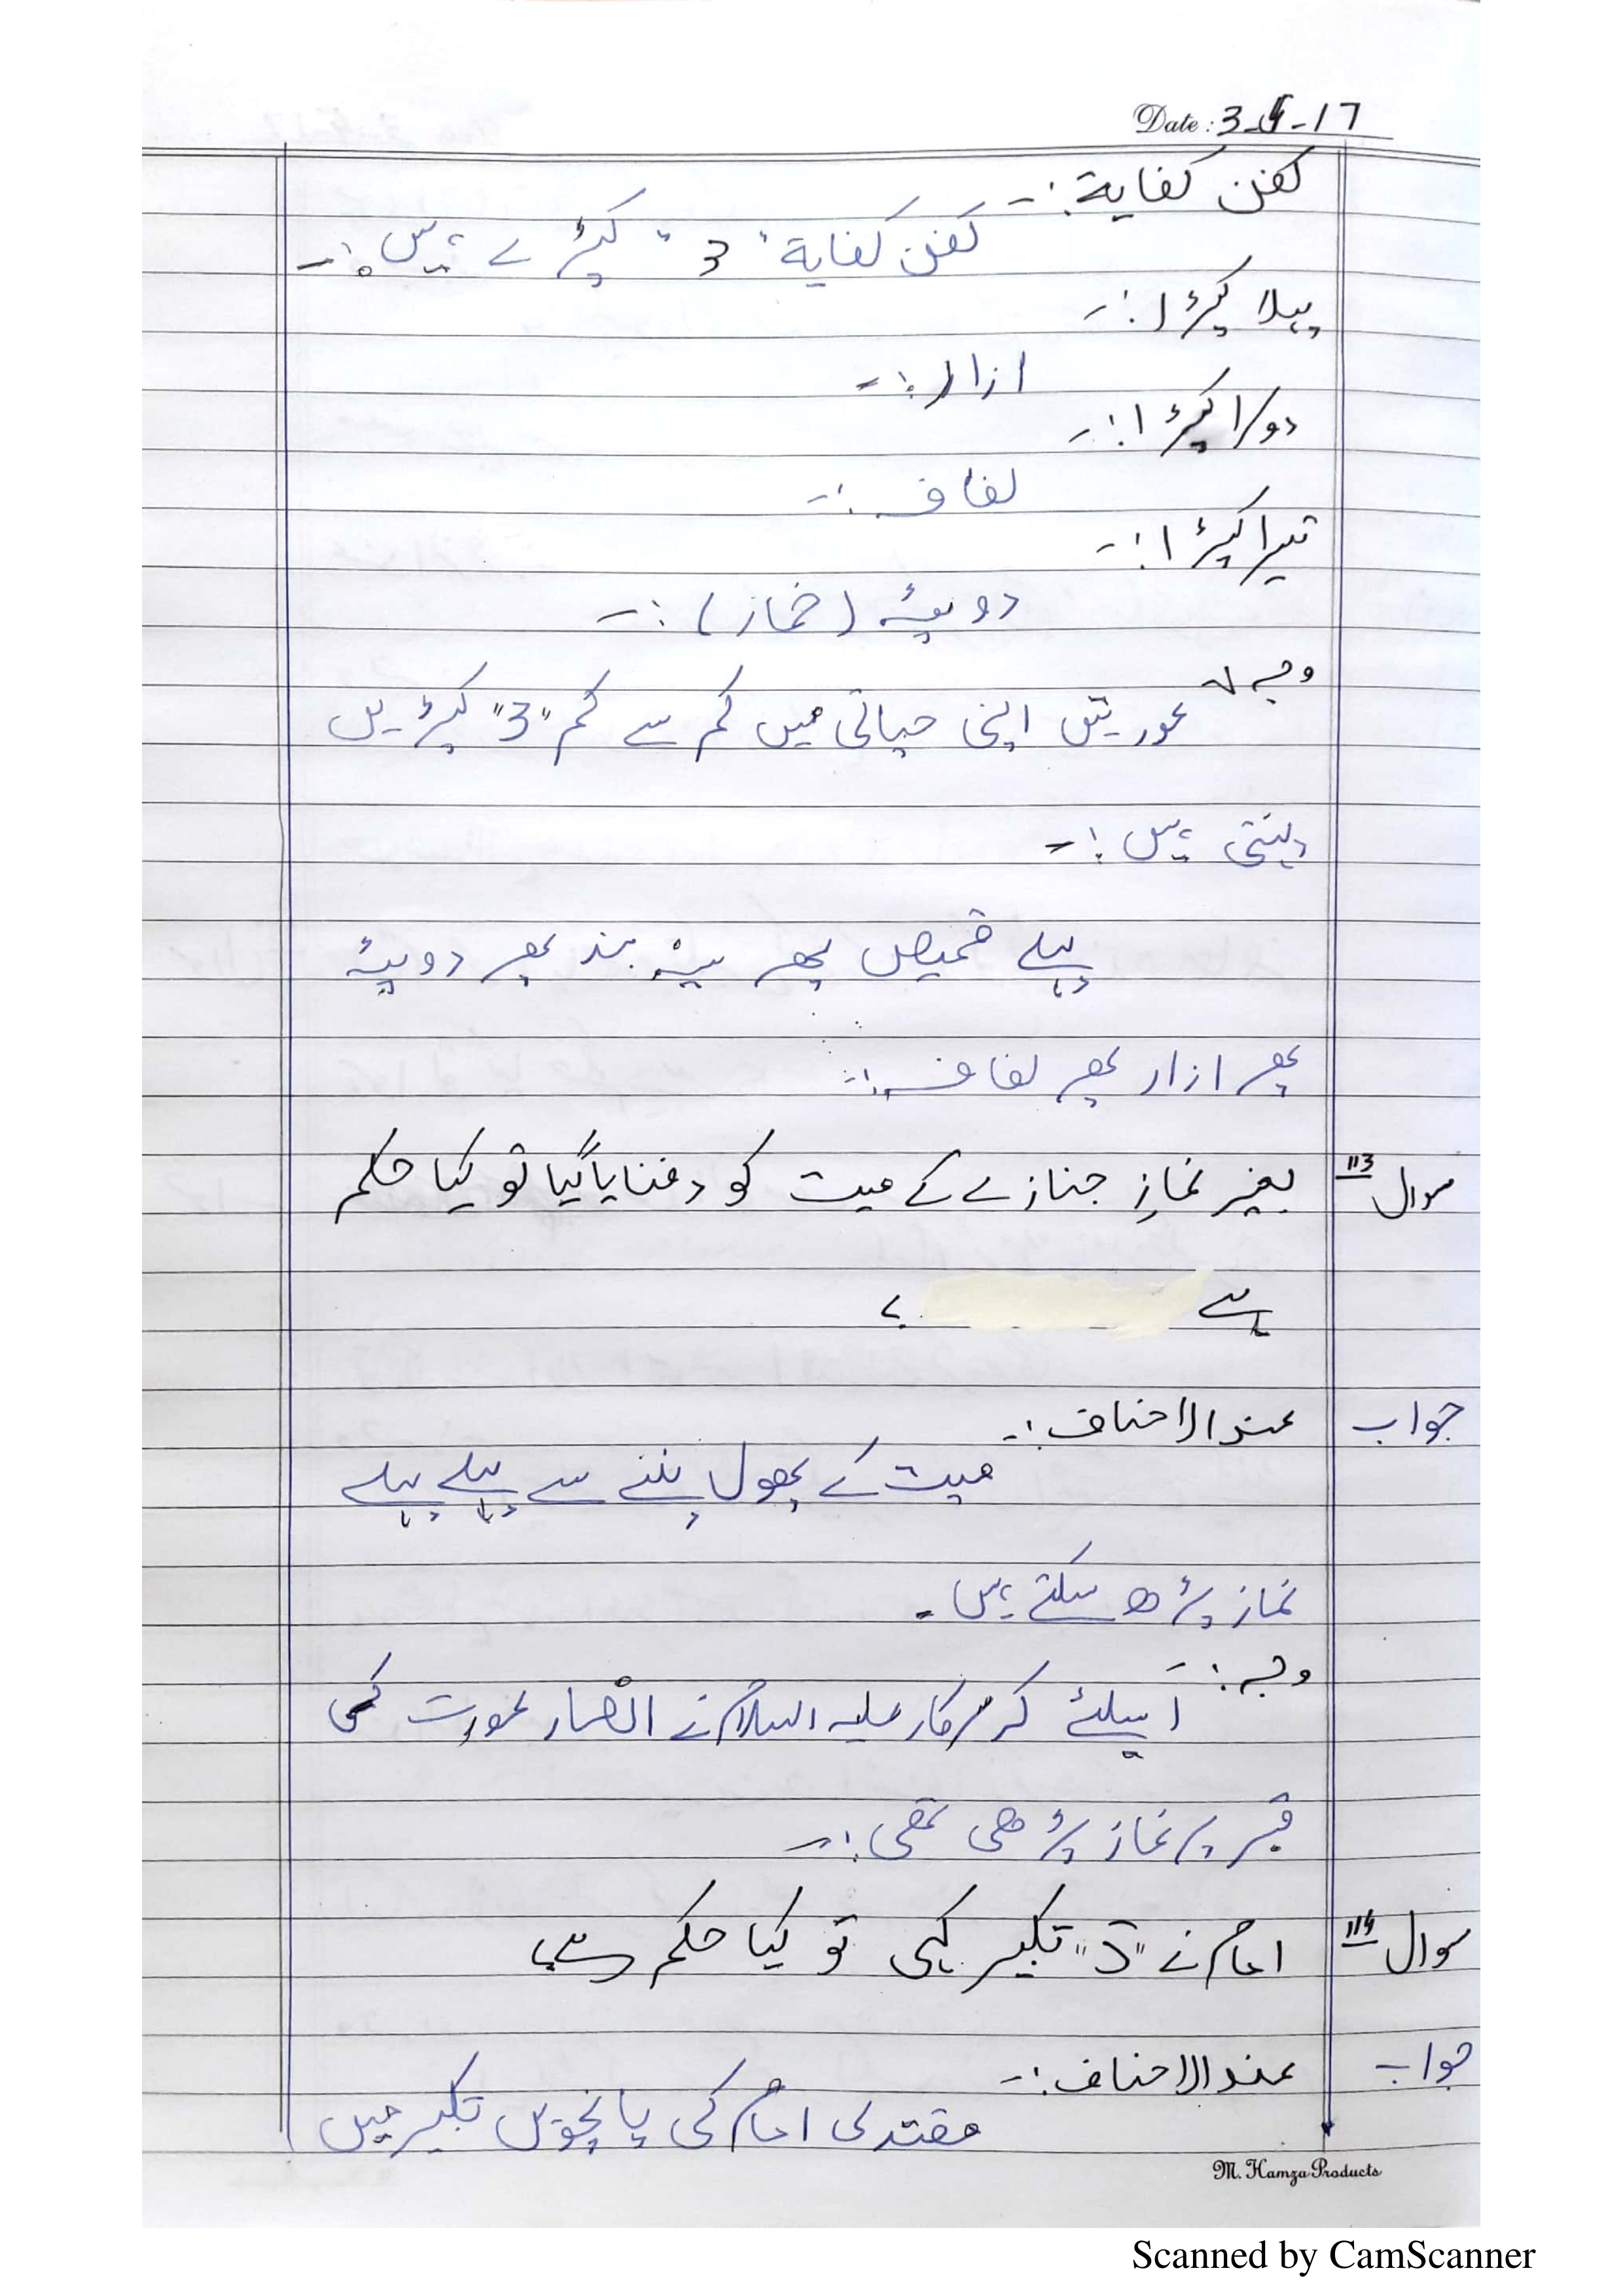 Date: 3-4-17
کفن کفایة:-
کفن کفایة "3" کپڑے ہیں:-
پہلا کپڑا:-
ازار:-
دوسرا کپڑا:-
لفافہ:-
تیسرا کپڑا:-
دوپٹہ (خمار):-
وجہ
عورتیں اپنی حیاتی میں کم سے کم "3" کپڑیں
پہنتی ہیں:-
پہلے قمیص پھر سینہ بند پھر دوپٹہ
پھر ازار پھر لفافہ:-
سوال 113 بغیر نمازِ جنازے کے میت کو دفنایا گیا تو کیا حکم
ہے ؟
جواب عندالاحناف:-
میت کے پھول پننے سے پہلے پہلے
نماز پڑھ سکتے ہیں۔
وجہ:-
اسلئے کہ سرکار علیہ السلام نے انصار عورت کی
قبر پر نماز پڑھی تھی:-
سوال 114 امام نے "5" تکبیر کہی تو کیا حکم ہے؟
جواب عندالاحناف:-
مقتدی امام کی پانچویں تکبیر میں
M. Hamza Products
Scanned by CamScanner